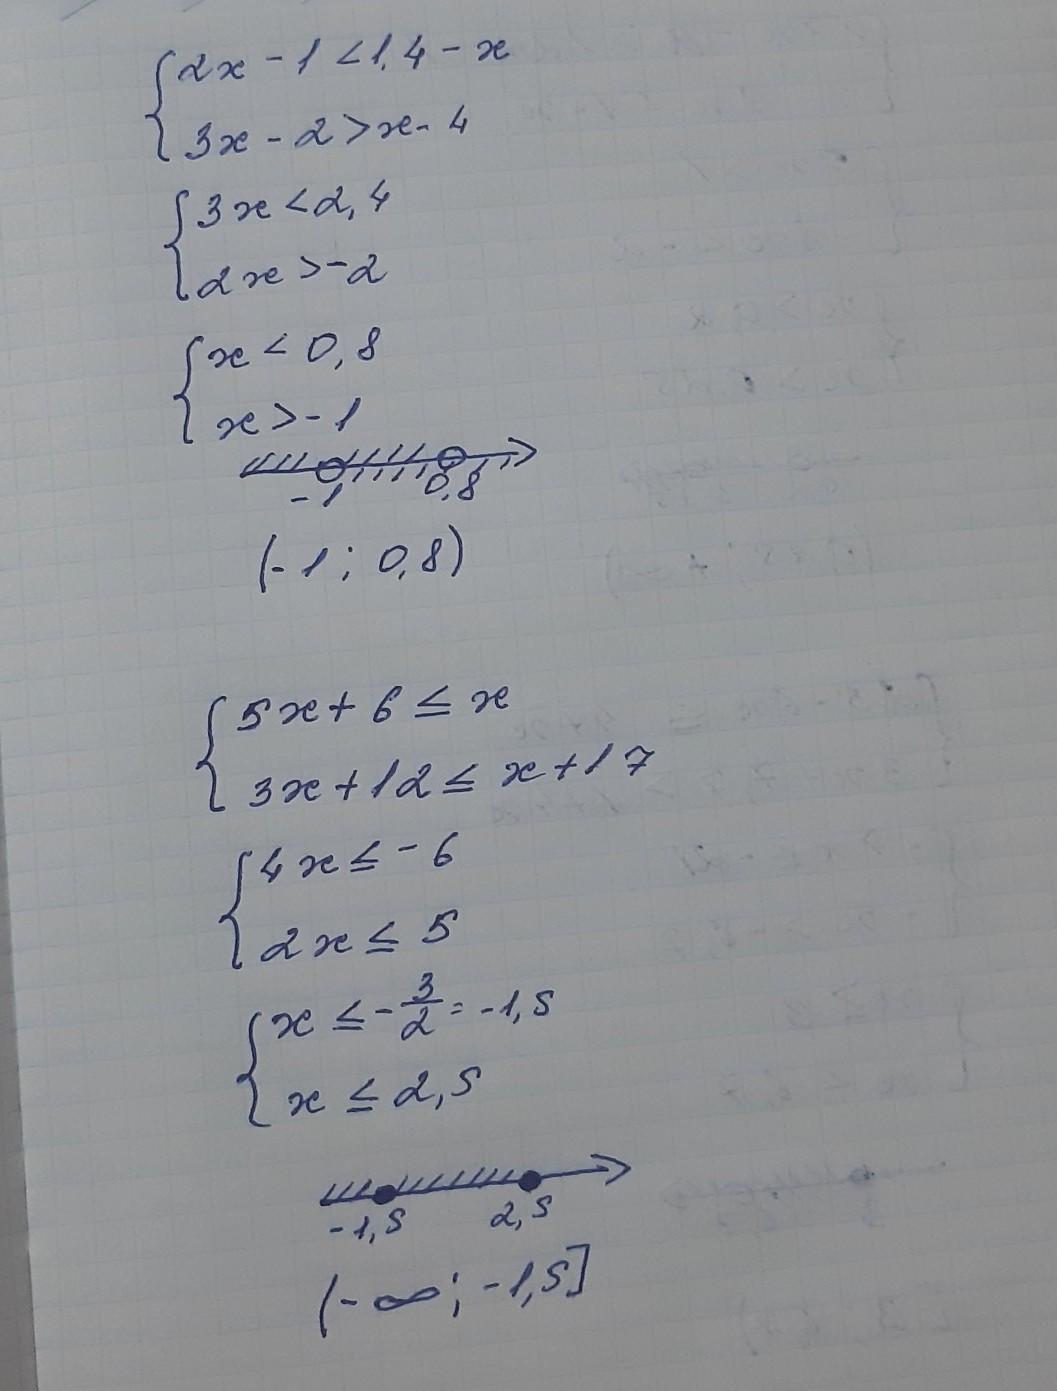 2x - 1 < 1,4 - x
3x - 2 > x - 4
3x < 2,4
2x > -2
x < 0,8
x > -1
-1 0,8
(-1; 0,8)
5x + 6 ≤ x
3x + 12 ≤ x + 17
4x ≤ -6
2x ≤ 5
x ≤ -3/2 = -1,5
x ≤ 2,5
-1,5 2,5
(-∞; -1,5]